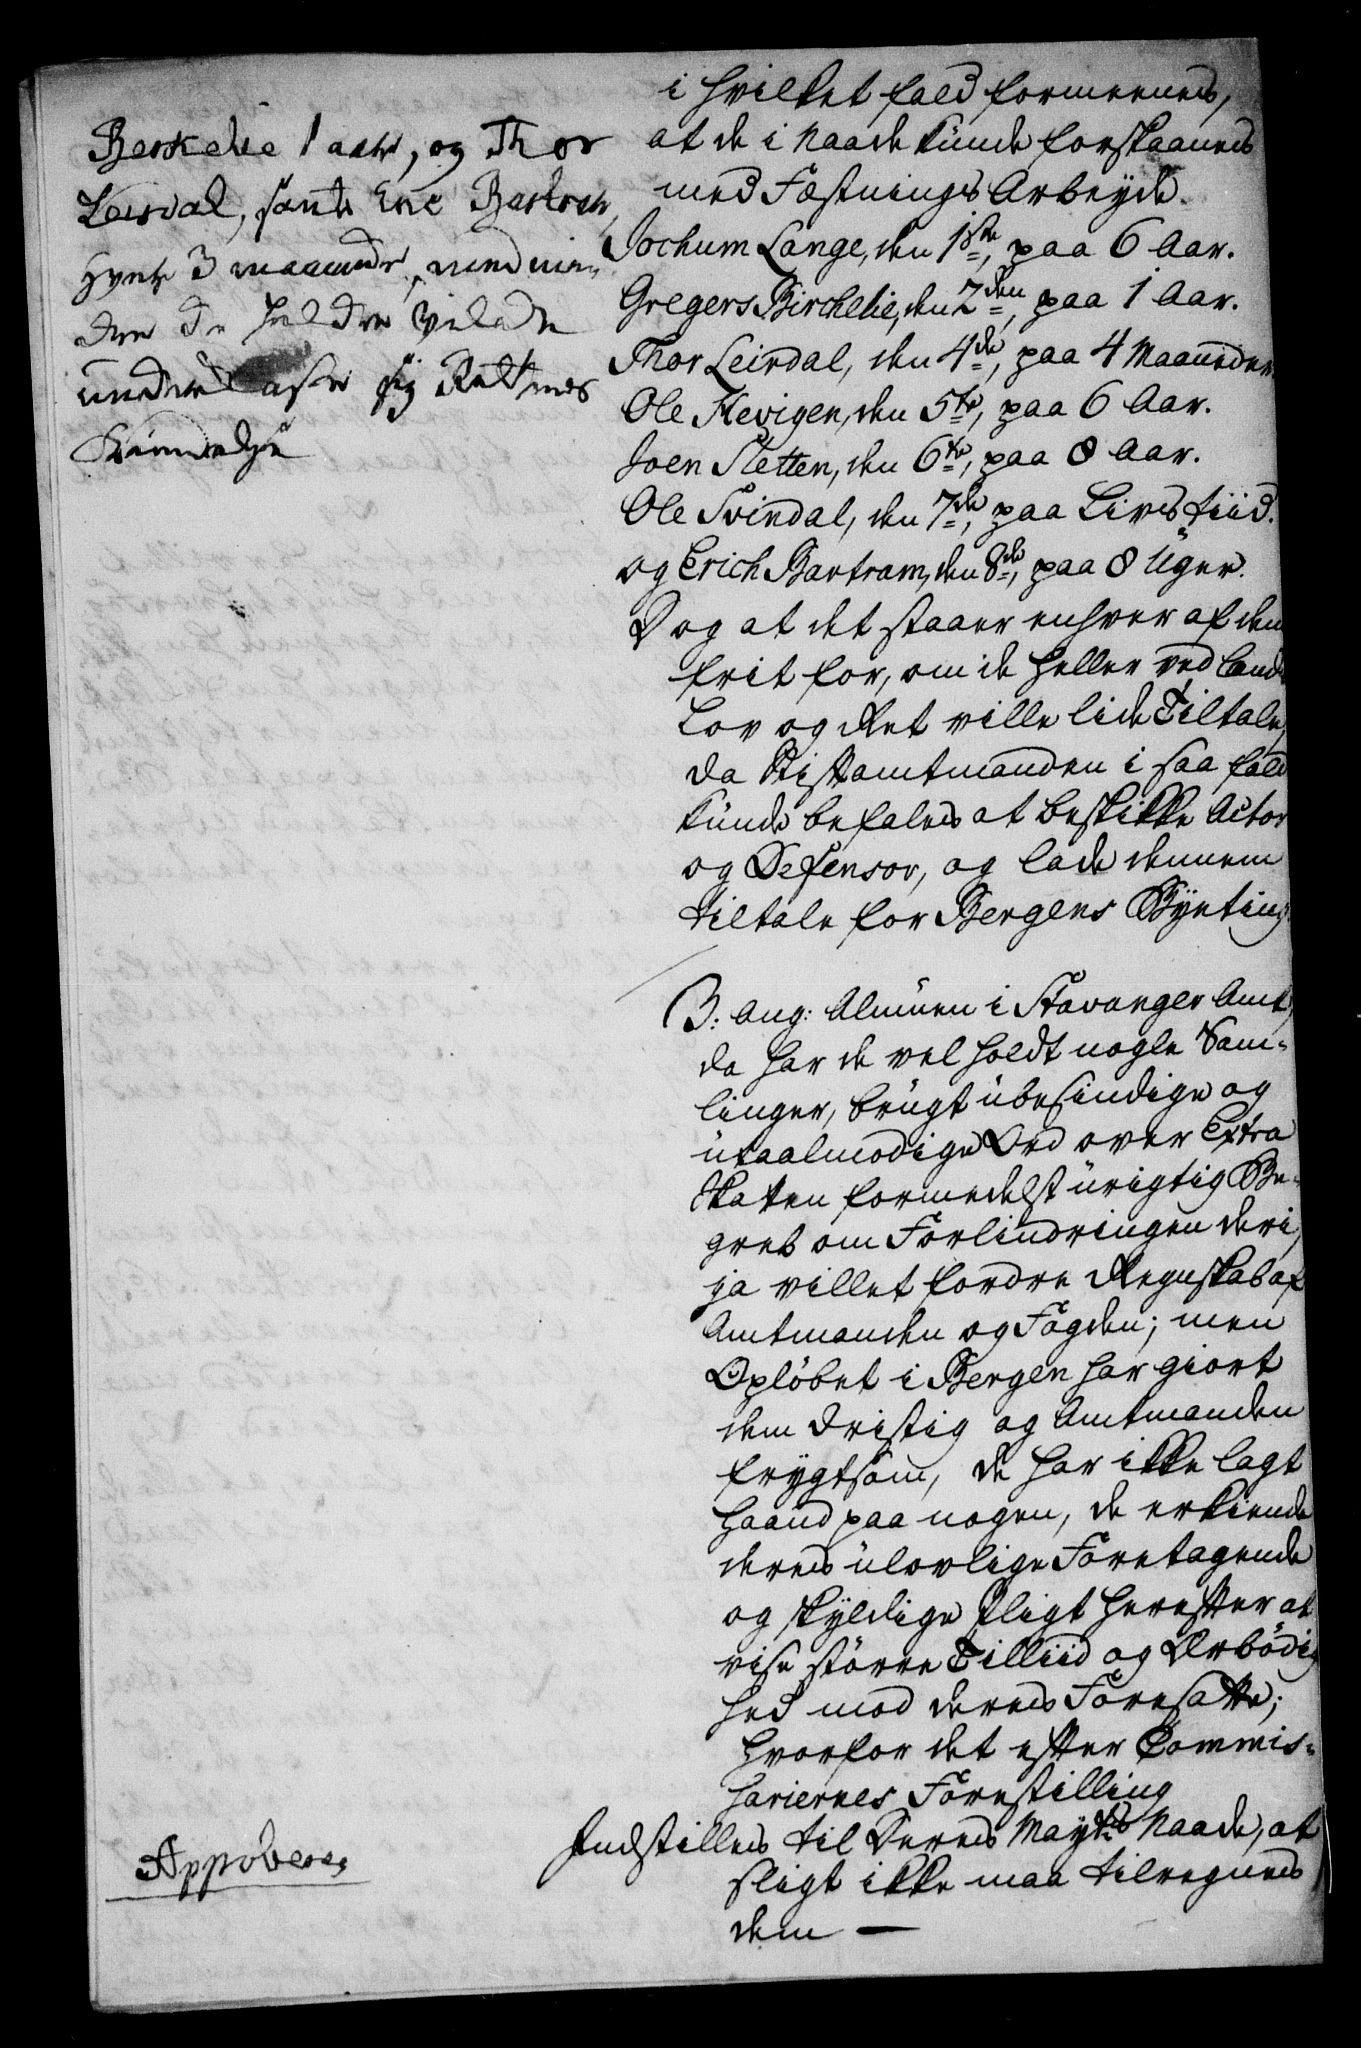 Berkelie 1 aahr, og Thor
Leirdal, samt Eric Bartram,
hver 3 maaneder, med min-
dre de heller vilde
underkaste sig Rettens
Kiendelse
i hvilket fald formeenes,
at de i Naade kunde forskaanes
med Fæstnings Arbeyde.
Jochum Lange, den 1ste, paa 6 Aar.
Gregers Birchelie, den 2den, paa 1 Aar.
Thor Leirdal, den 4de, paa 4 Maaneder
Ole Hevigen, den 5te, paa 6 Aar.
Joen Sletten, den 6te, paa 8 Aar.
Ole Svindal, den 7de, paa Lives tiid.
og Erich Bartram, den 8de, paa 8 Uger.
Dog at det staaer enhver af dem
frit for, om de heller ved Lands
Lov og Ret ville lide Tiltale,
da Stiftamtmanden i saa fald
kunde befales at beskikke Actor
og Defensor, og lade dennem
tiltale for Bergens Byeting
3: Ang: Almuen i Stavanger Amt,
da har de vel holdt nogle Sam-
linger, brugt ubesindige og
utaalmodige Ord over Extra
Skatten formedelst urigtig Be-
greb om Forlindringen deri,
ja villet fordre Regnskab af
Amtmanden og Fogden; men
Opløbet i Bergen har giort
dem dristig og Amtmanden
frygtsom, de har ikke lagt
haand paa nogen, de erkiende
deres ulovlige Foretagende
og skyldige Pligt herefter at
vise større Tilliid og Ærbødig
hed mod deres Foresatte;
hvorfor det efter Commis-
sariernes Forestilling
Indstilles til Deres Mayts Naade, at
sligt ikke maa tilregnes
dem —
Approberes